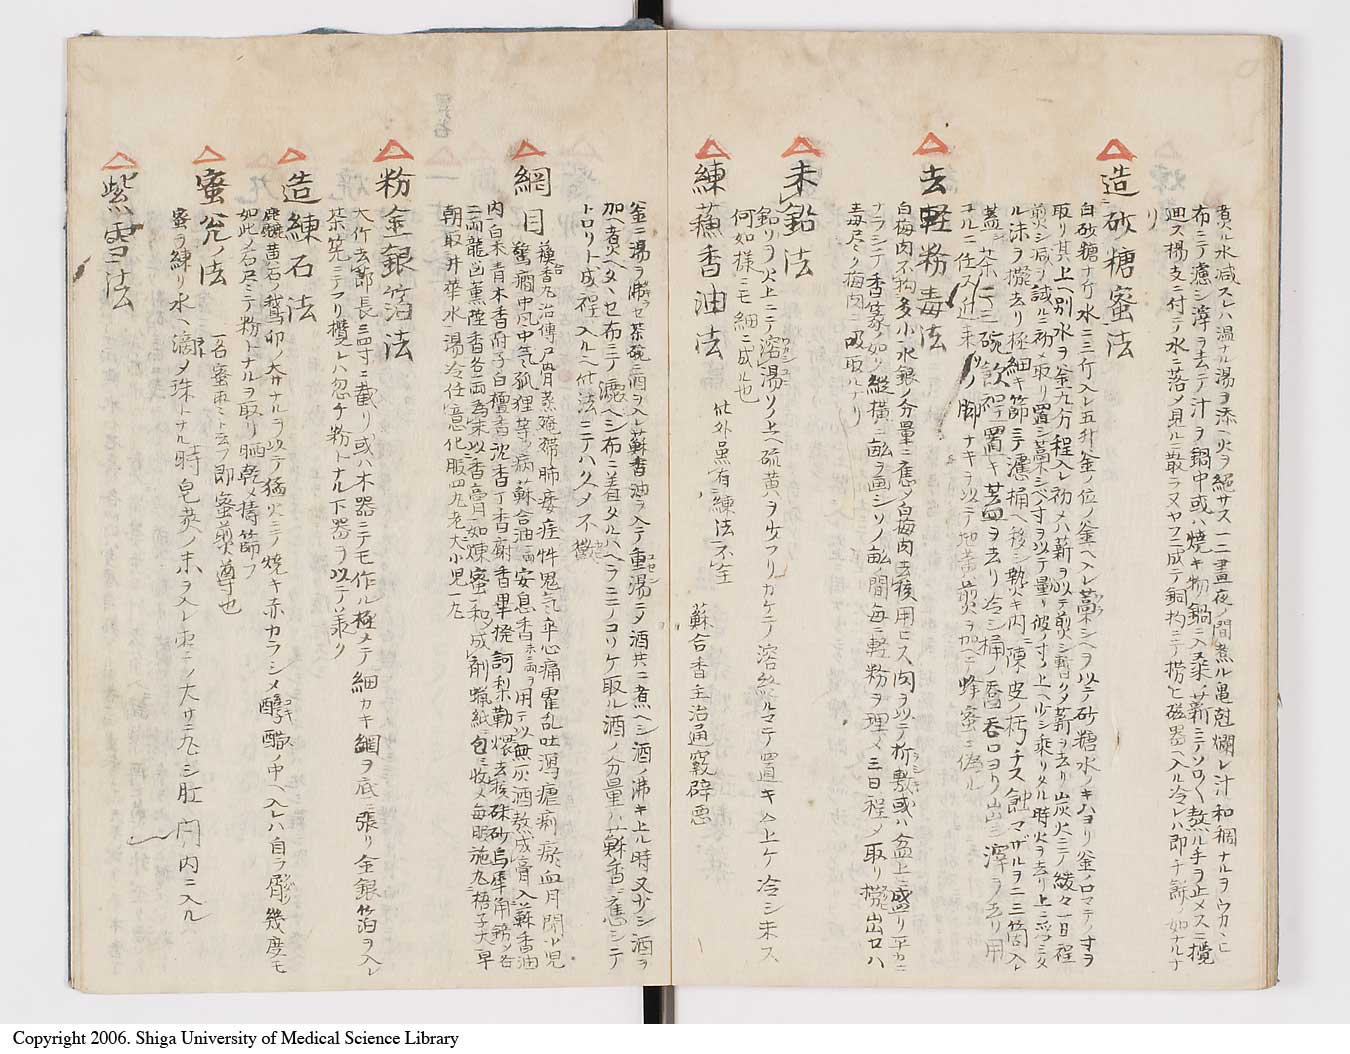 煮ル水減スレハ温ナル湯ヲ添ヘ火ヲ絶サス一二晝夜ノ間煮ル亀尅爛レ汁和稠ナルヲウカヽヒ
布ニテ濾シ滓ヲ去テ汁ヲ鍋中或ハ焼キ物鍋ニ入柔薪ニテソロ〱熬ル手ヲ止メスニ攪
廻ス楊支ニ付テ水ニ落メ見ルニ散ラスヤフニ成テ銅杓ニテ撈ヒ磁器ヘ入ル冷レハ即チ餅ノ如ナルナ
リ
△造砂糖蜜法
白砂糖十斤水二三斤入レ五升釜ノ位ノ釜ヘ入レ藁シヘヲ以テ砂糖水ノキハヨリ釜ノ口マテノ寸ヲ
取リ其上ヘ別水ヲ釜九分程入レ初メハ薪ヲ以テ煎シ暫ク〆薪ヲ去リ炭火ニテ緩々一日程
煎シ減ヲ試ルニ初メ取リ置シ藁シベ寸ヲ以テ量リ彼ノ寸ノ上ヘ少シ乘リタル時火ヲ去リ上ニ浮ミタ
ル沫ヲ攪去リ極細キ篩ニテ濾桶ヘ移シ熱キ内ニ陳皮ノ朽チス蝕マザルヲ二三箇入レ
蓋シ茶二三碗飲程置キ蓋ヲ去リ冷シ桶ノ呑口ヨリ出シ滓ヲ去リ用
ユルニ任ス近来ノ脚ナキヲ以テ地黄煎ヲ加ヘテ蜂蜜ニ偽ル
△去輕粉毒法
白梅肉不拘多小水銀ノ分量ニ應〆白梅肉去核用ヒス肉ヲ以テ折敷或ハ盆上ニ盛リ平カニ
ナラシテ香篆ノ如ク縱横ニ畝ヲ画シソノ畝ノ間毎ニ輕粉ヲ埋メ三日程〆取リ攪出セハ
毒尽ク梅肉ニ吸取ルナリ
△末鉛法
鉛リヲ火上ニテ溶湯ソノ上ヘ硫黄ヲ少フリカケテ溶終ルマテ置キ入上ケ冷シ末ス
何如様ニモ細ニ成ル也
△練蘓香油法 此外虽有練法不全 蘇合香主治通竅辟惡
釜ニ湯ヲ沸ラセ茶碗ニ酒ヲ入レ蘇香油ヲ入テ重湯ニ〆酒共ニ煮ヘシ酒ノ沸キ上ル時又少シ酒ヲ
加ヘ煮ヘタヽハセ布ニテ漉ヘシ布ニ着タルハヘラニテコリケ取ル酒ノ分量ハ蘇香ニ應シニテ
トロリト成程入ルヘ付法ニテハクメ不徽
△網目 蘓合香丸治傳尸骨蒸殗殜肺痿疰忤鬼氣卒心痛霍乱吐瀉瘧痢瘀血月閉小児
驚癇中風中氣狐狸等ノ病蘇合油一両安息香末二両ヲ用テ以無灰酒熬成膏入蘇香油
内白朮青木香附子白檀香沈香丁香麝香畢撥訶梨勒煨去核硃砂烏犀角鎊メ各
二両龍脳薫陸香各一両為末以香膏加煉蜜和〆成劑蝋紙ニ包ミ收メ毎朝施丸梧子大早
朝取井華水温冷任意化服四丸老人小児一丸
△粉金銀箔法
大竹去節長三四寸ニ截リ或ハ木器ニテモ作ル極メテ細カキ網ヲ底ニ張リ金銀箔ヲ入レ
茶筅ニテフリ攪レハ忽チ粉トナル下器ヲ以テ羕ク
△造練石法
麁黄石ノ鵞卵ノ大サナルヲ以テ猛火ニテ焼キ赤カラシメ醇醋ノ中ヘ入レハ自ラ屑ル幾度モ
如此メ石尽ミテ粉トナルヲ取リ晒乾メ擣篩フ
△蜜尣ノ法 一名蜜東ミト云フ即蜜煎導也
蜜ヲ練リ水ヘ滴メ珠トナル時皂莢ノ末ヲ入レ棗ノ大サニ丸シ肛門内ニ入ル
△紫雪法